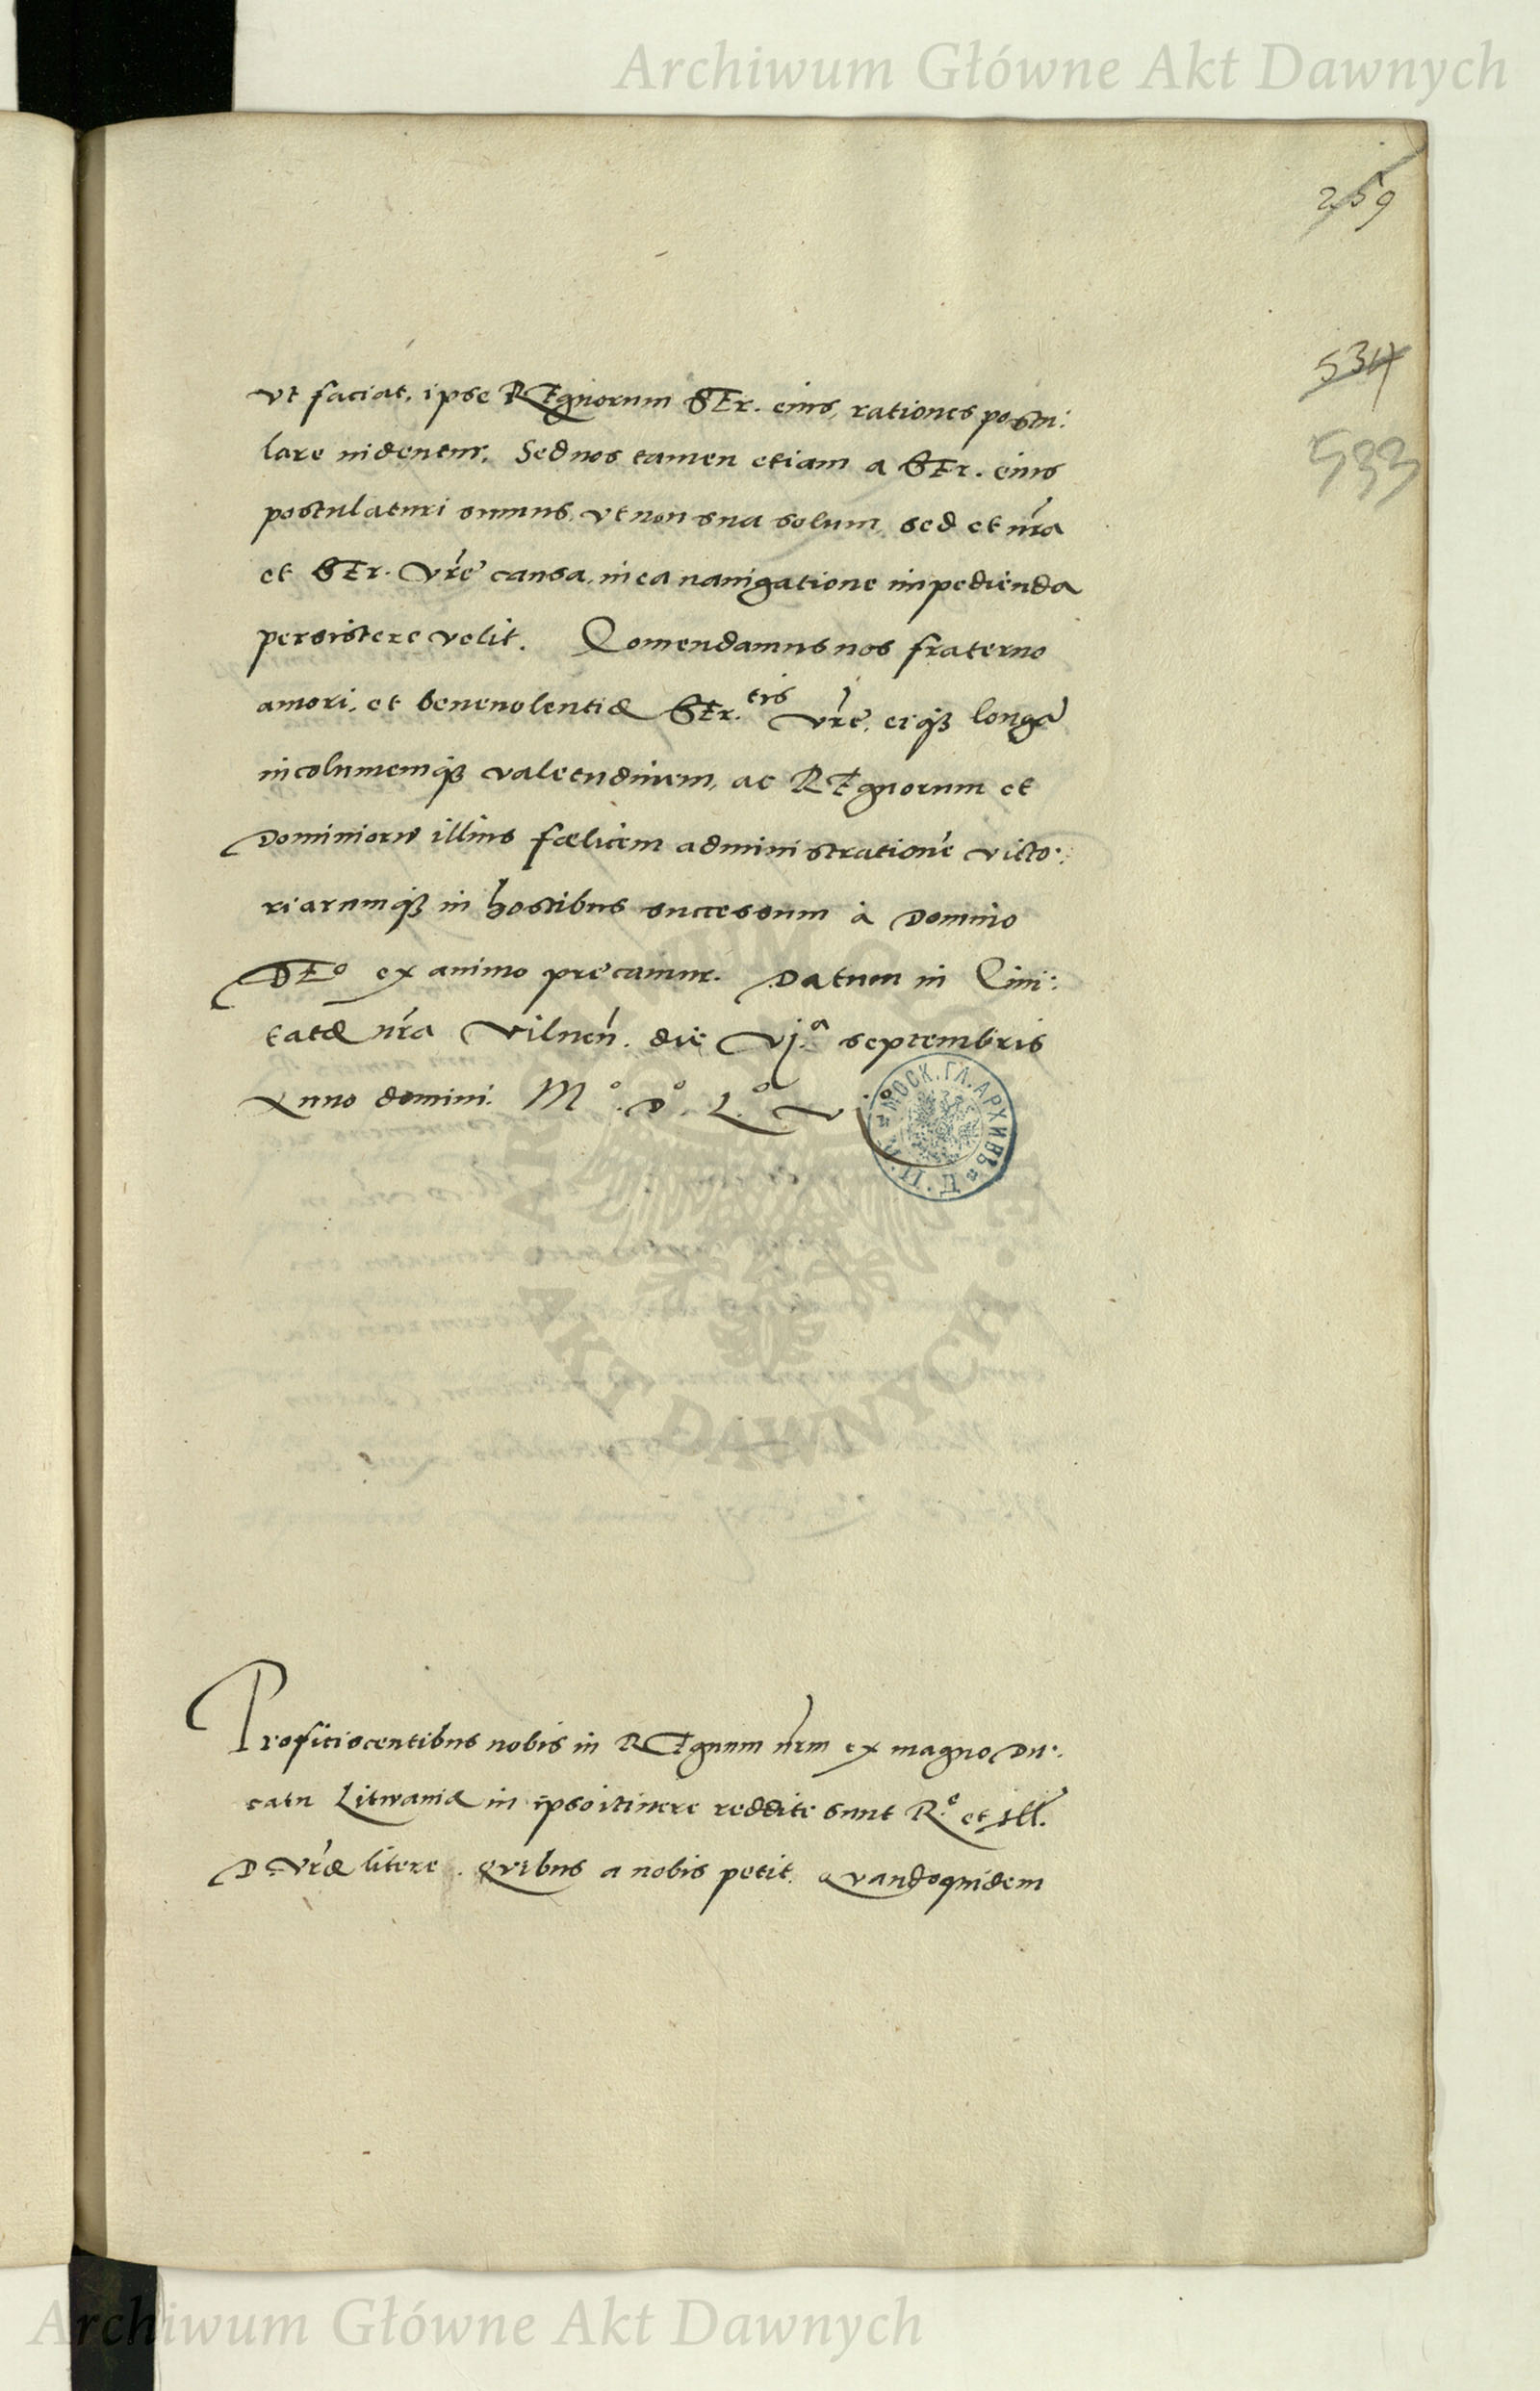 Archiwum Główne Akt Dawnych
259
534
533
Vt faciat, ipse REgnorum SEr. eius, rationes postu:
lare uidentur. Sed nos tamen etiam a SEr. eius
postulaturi sumus, vt non sua solum, sed et nra
et SEr. Vrę causa, in ea nauigatione impedienda
persistere velit. Comendamus nos fraterno
amori, et beneuolentiæ SEr.tis Vrę, eiq3 longā
incolumemq3 valetudinem, ac REgnorum et
Dominiorū illius fœlicem administrationē victo:
riarumq3 in hostibus successum à Domino
DEo ex animo pręcamur. Datum in Ciui:
tatæ nra Vilneñ. die Vj.a septembris
Anno domini. Mo. Do. Lo. Vijo
МОСК. ГЛ. АРХИВЪ
Ц. П.
ARCHIWUM
AKT DAWNYCH
Proficiscentibus nobis in REgnum nrm ex magno Du:
catu Litwaniæ in ipso itinere reddite sunt R.e et Ill.
D Vræ litere. Quibus a nobis petit. Quandoquidem
Archiwum Główne Akt Dawnych